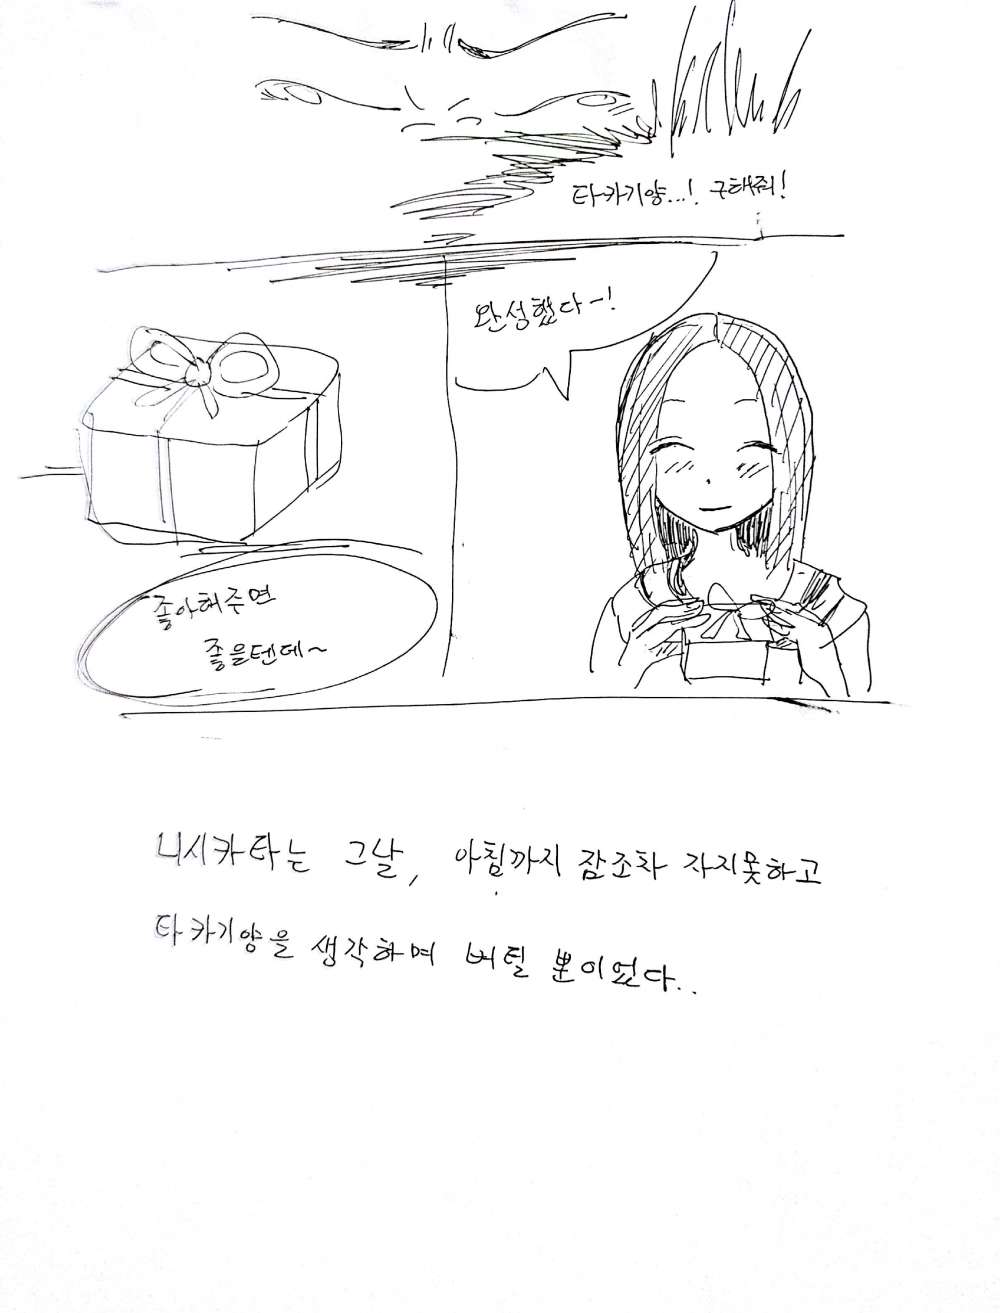 타카기양...! 구해줘!
완성했다~!
좋아해주면
좋을텐데~
니시카타는 그날, 아침까지 잠조차 자지못하고
타카기양을 생각하며 버틸 뿐이었다..